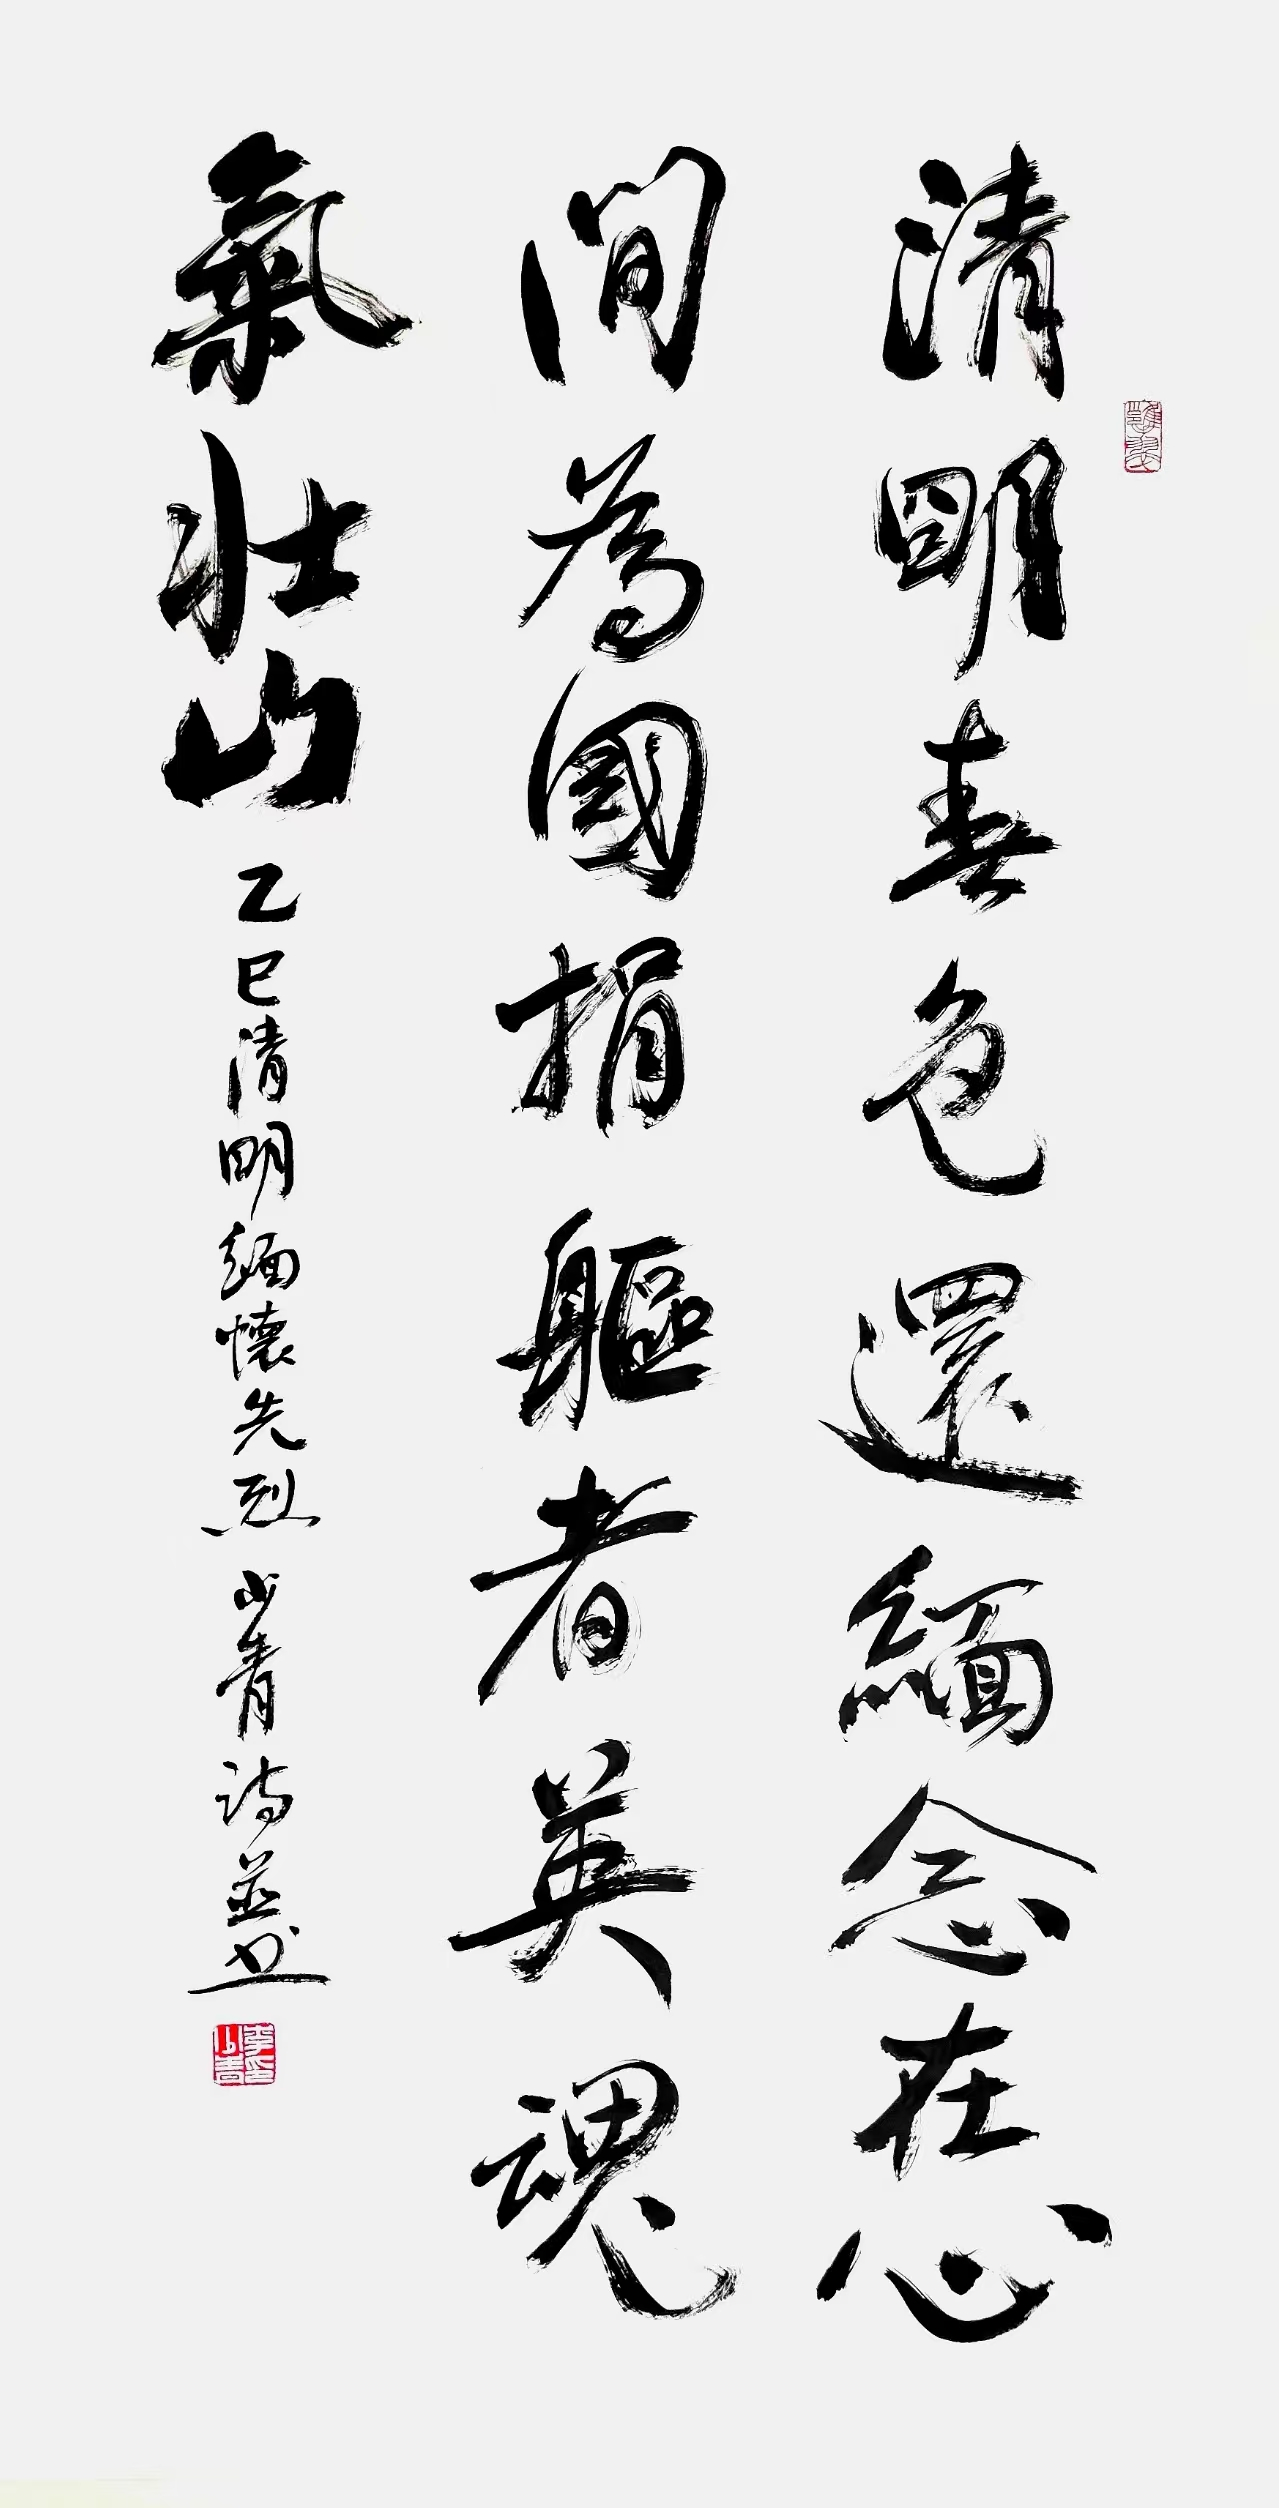 清明春色還緬念在心
間為國捐軀者英魂
氣壯山 乙巳清明緬懷先烈 少青詩並书